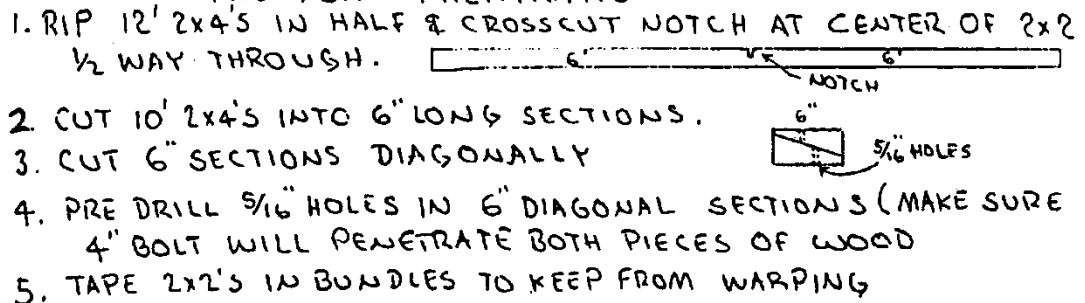 1. RIP 12' 2x4'S IN HALF & CROSSCUT NOTCH AT CENTER OF 2x2
1/2 WAY THROUGH.
6' 6'
NOTCH
2. CUT 10' 2x4'S INTO 6" LONG SECTIONS.
6"
3. CUT 6" SECTIONS DIAGONALLY
5/16" HOLES
4. PRE DRILL 5/16" HOLES IN 6" DIAGONAL SECTIONS (MAKE SURE
4" BOLT WILL PENETRATE BOTH PIECES OF WOOD
5. TAPE 2x2'S IN BUNDLES TO KEEP FROM WARPING